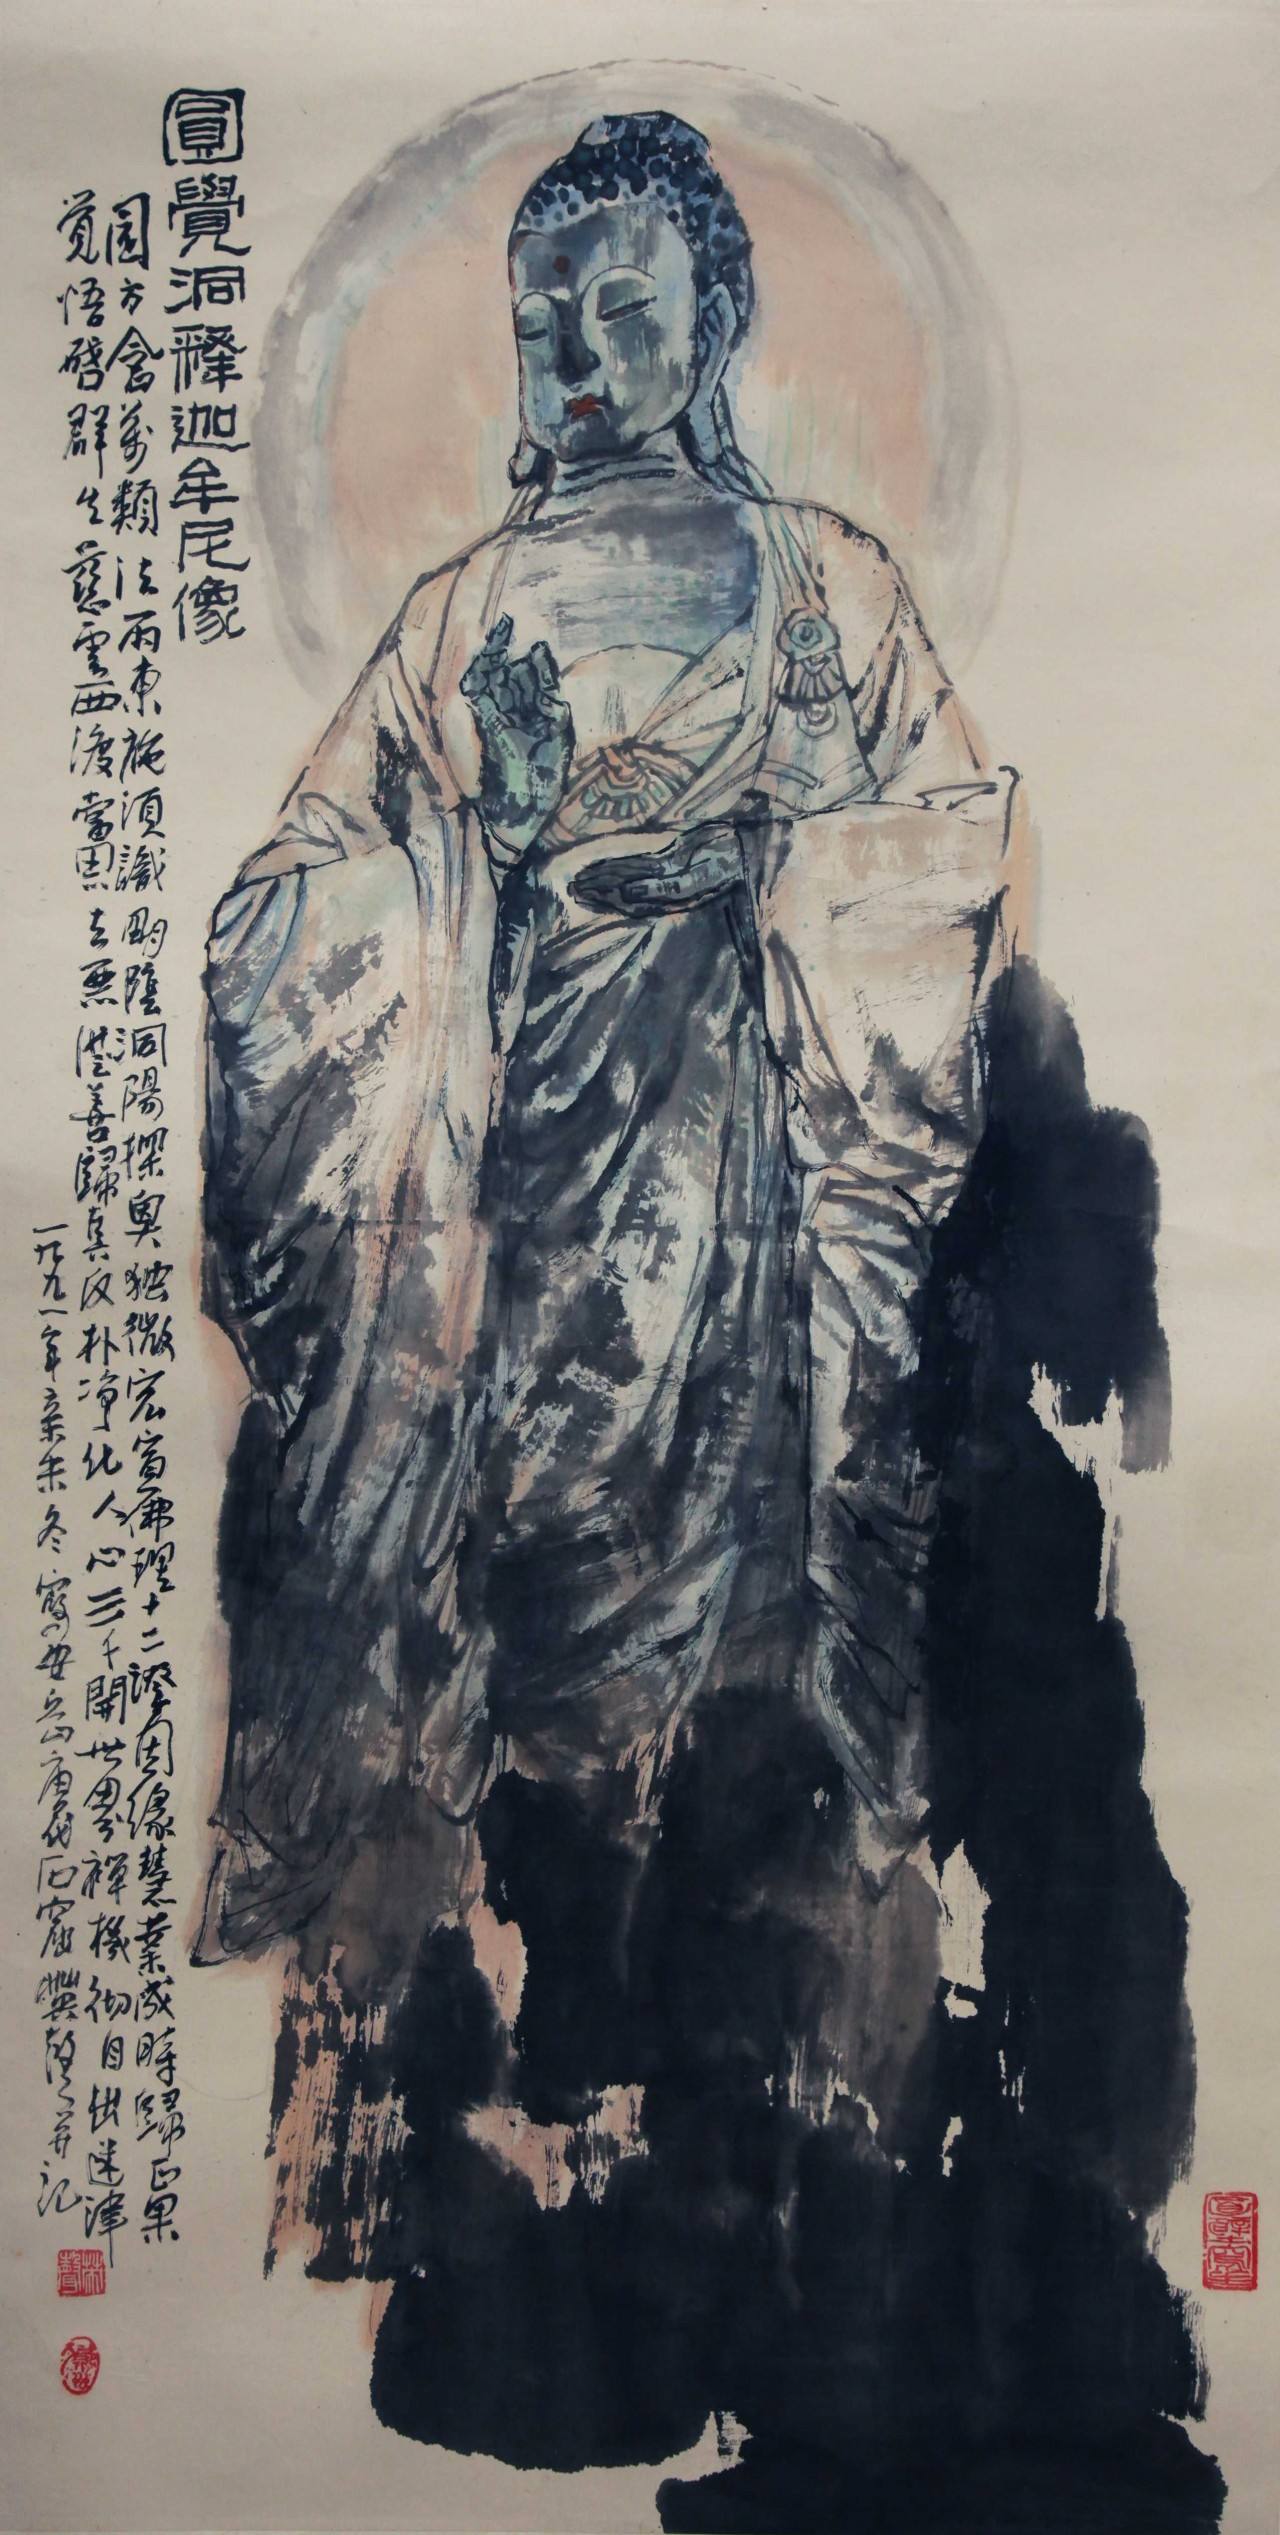 圓覺洞釋迦牟尼像
圆方含萬類法雨東施須識陰洞陽探奧独微宏宣佛理十二證因緣慧業成時歸正果
覚悟啓群生慈雲西渡當思去惡從善歸真反朴净化人心三千開世界禪機彻自出迷津
一九九一年辛未冬寫安岳山唐代石窟 林聲并记